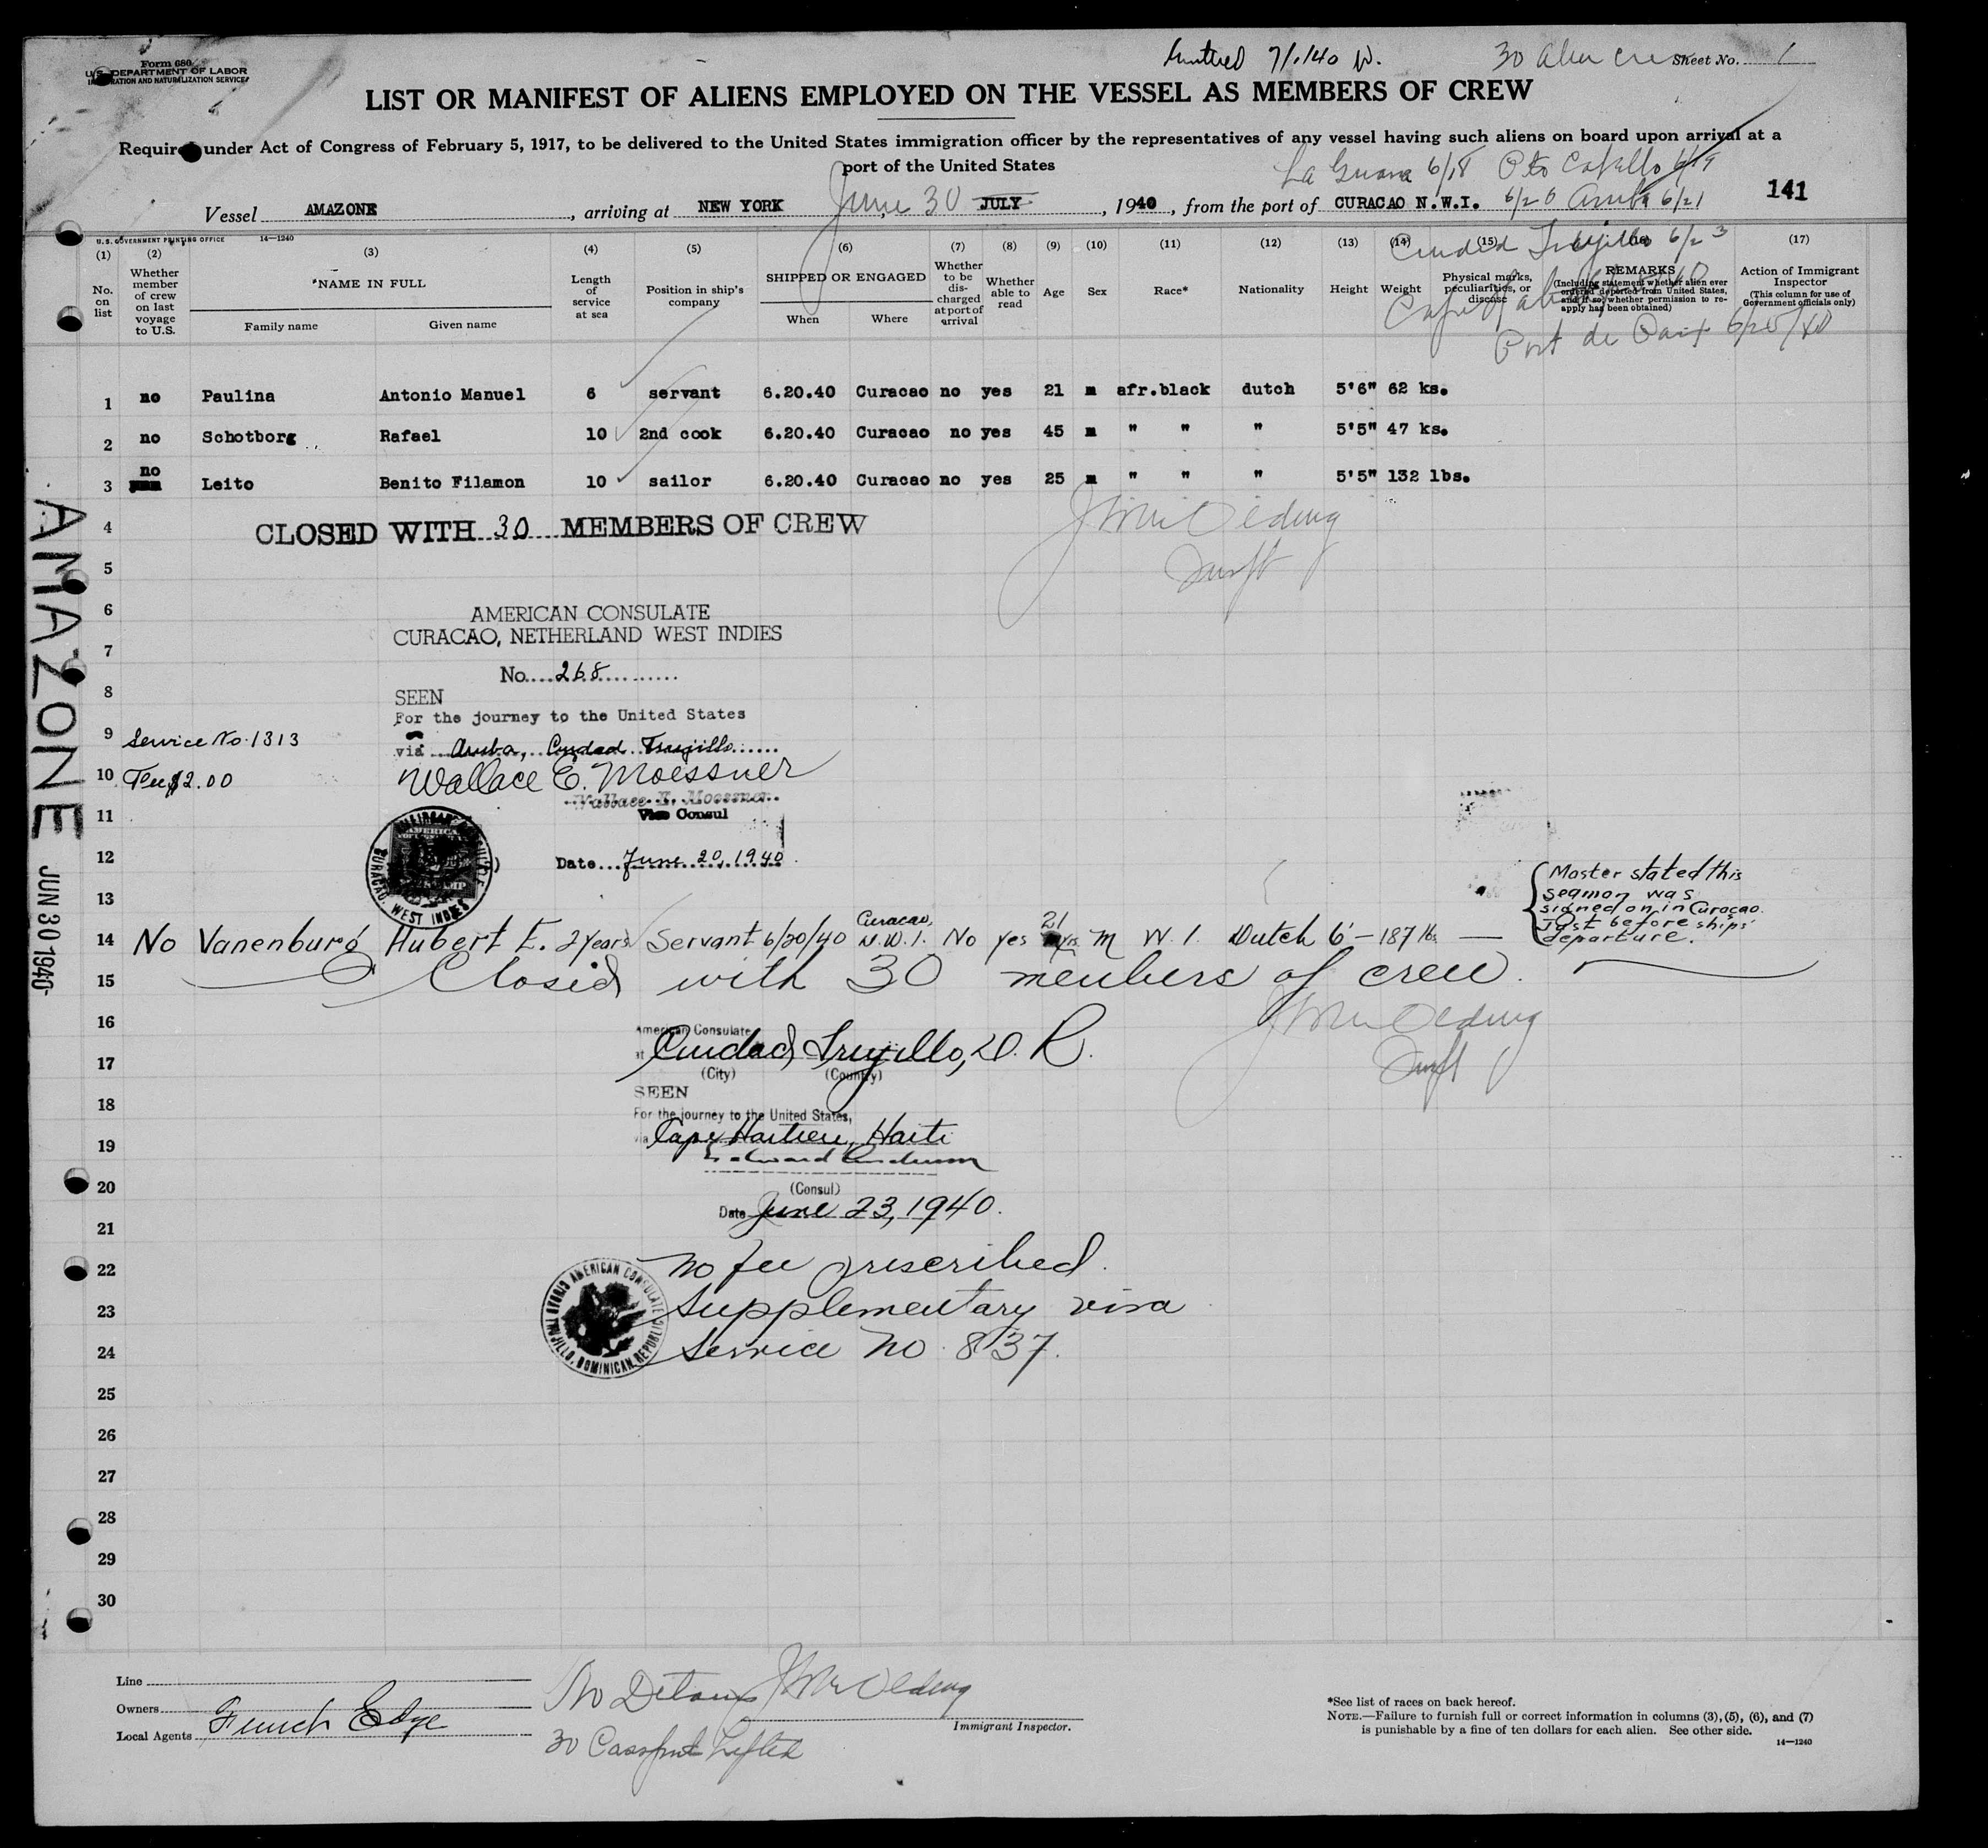 Form 680
U. S. DEPARTMENT OF LABOR
IMMIGRATION AND NATURALIZATION SERVICE
7/1/40
30 alien crew
Sheet No. 1
LIST OR MANIFEST OF ALIENS EMPLOYED ON THE VESSEL AS MEMBERS OF CREW
Required under Act of Congress of February 5, 1917, to be delivered to the United States immigration officer by the representatives of any vessel having such aliens on board upon arrival at a
port of the United States
La Guaira 6/18 Pto Cabello 6/19
Vessel AMAZONE, arriving at NEW YORK June 30 JULY, 1940, from the port of CURACAO N.W.I. 6/20 Aruba 6/21
141
Ciudad Trujillo 6/23
Port de Paix 6/25/40
U. S. GOVERNMENT PRINTING OFFICE 14—1240
(1) (2) (3) (4) (5) (6) (7) (8) (9) (10) (11) (12) (13) (14) (15) (16) (17)
No. on list
Whether member of crew on last voyage to U.S.
*NAME IN FULL
Family name Given name
Length of service at sea
Position in ship's company
SHIPPED OR ENGAGED
When Where
Whether to be discharged at port of arrival
Whether able to read
Age
Sex
Race*
Nationality
Height
Weight
Physical marks, peculiarities, or disease
REMARKS
(Including statement whether alien ever ordered deported from United States, and if so, whether permission to reapply has been obtained)
Action of Immigrant Inspector
(This column for use of Government officials only)
1 no Paulina Antonio Manuel 6 servant 6.20.40 Curacao no yes 21 m afr.black dutch 5'6" 62 ks.
2 no Schotborg Rafael 10 2nd cook 6.20.40 Curacao no yes 45 m " " " 5'5" 47 ks.
3 no Leito Benito Filamon 10 sailor 6.20.40 Curacao no yes 25 m " " " 5'5" 132 lbs.
4 CLOSED WITH 30 MEMBERS OF CREW
5
6 AMERICAN CONSULATE
CURACAO, NETHERLAND WEST INDIES
7
No. 268
8 SEEN
For the journey to the United States
9 Service No. 1313
via Aruba, Ciudad Trujillo
10 Fee $2.00
Wallace E. Moessner
Wallace E. Moessner
Vice Consul
11
12 Date June 20, 1940
13
Master stated this
seaman was
signed on in Curacao
just before ship's
departure.
14 No Vanenburg Hubert E. 2 years Servant 6/20/40 Curacao, N.W.I. No yes 21 yrs M W. I. Dutch 6' — 187 lbs. —
15 Closed with 30 members of crew.
16 American Consulate
at Ciudad Trujillo, D. R.
17 (City) (Country)
SEEN
18
For the journey to the United States,
19 via Cape Haitien, Haiti
Edward Anderson
20 (Consul)
Date June 23, 1940.
21
22 No fee prescribed.
23 Supplementary visa
24 Service No. 837.
25
26
27
28
29
30
AMAZONE JUN 30 1940
AMERICAN CONSULATE
TRUJILLO, DOMINICAN REPUBLIC
Line
Owners
Local Agents French Edye
Immigrant Inspector.
30 Passport Lifted
*See list of races on back hereof.
NOTE.—Failure to furnish full or correct information in columns (3), (5), (6), and (7)
is punishable by a fine of ten dollars for each alien. See other side.
14—1240